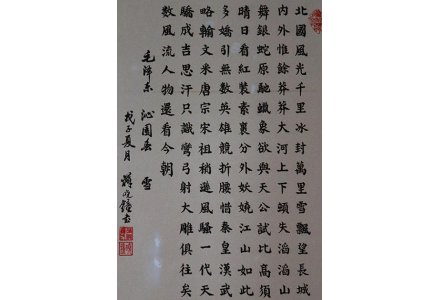 北國風光千里冰封萬里雪飄望長城
內外惟餘莽莽大河上下頓失滔滔山
舞銀蛇原馳蠟象欲與天公試比高須
晴日看紅裝素裹分外妖嬈江山如此
多嬌引無數英雄競折腰惜秦皇漢武
略輸文采唐宗宋祖稍遜風騷一代天
驕成吉思汗只識彎弓射大雕俱往矣
數風流人物還看今朝
毛澤东 沁園春 雪
戊子夏月